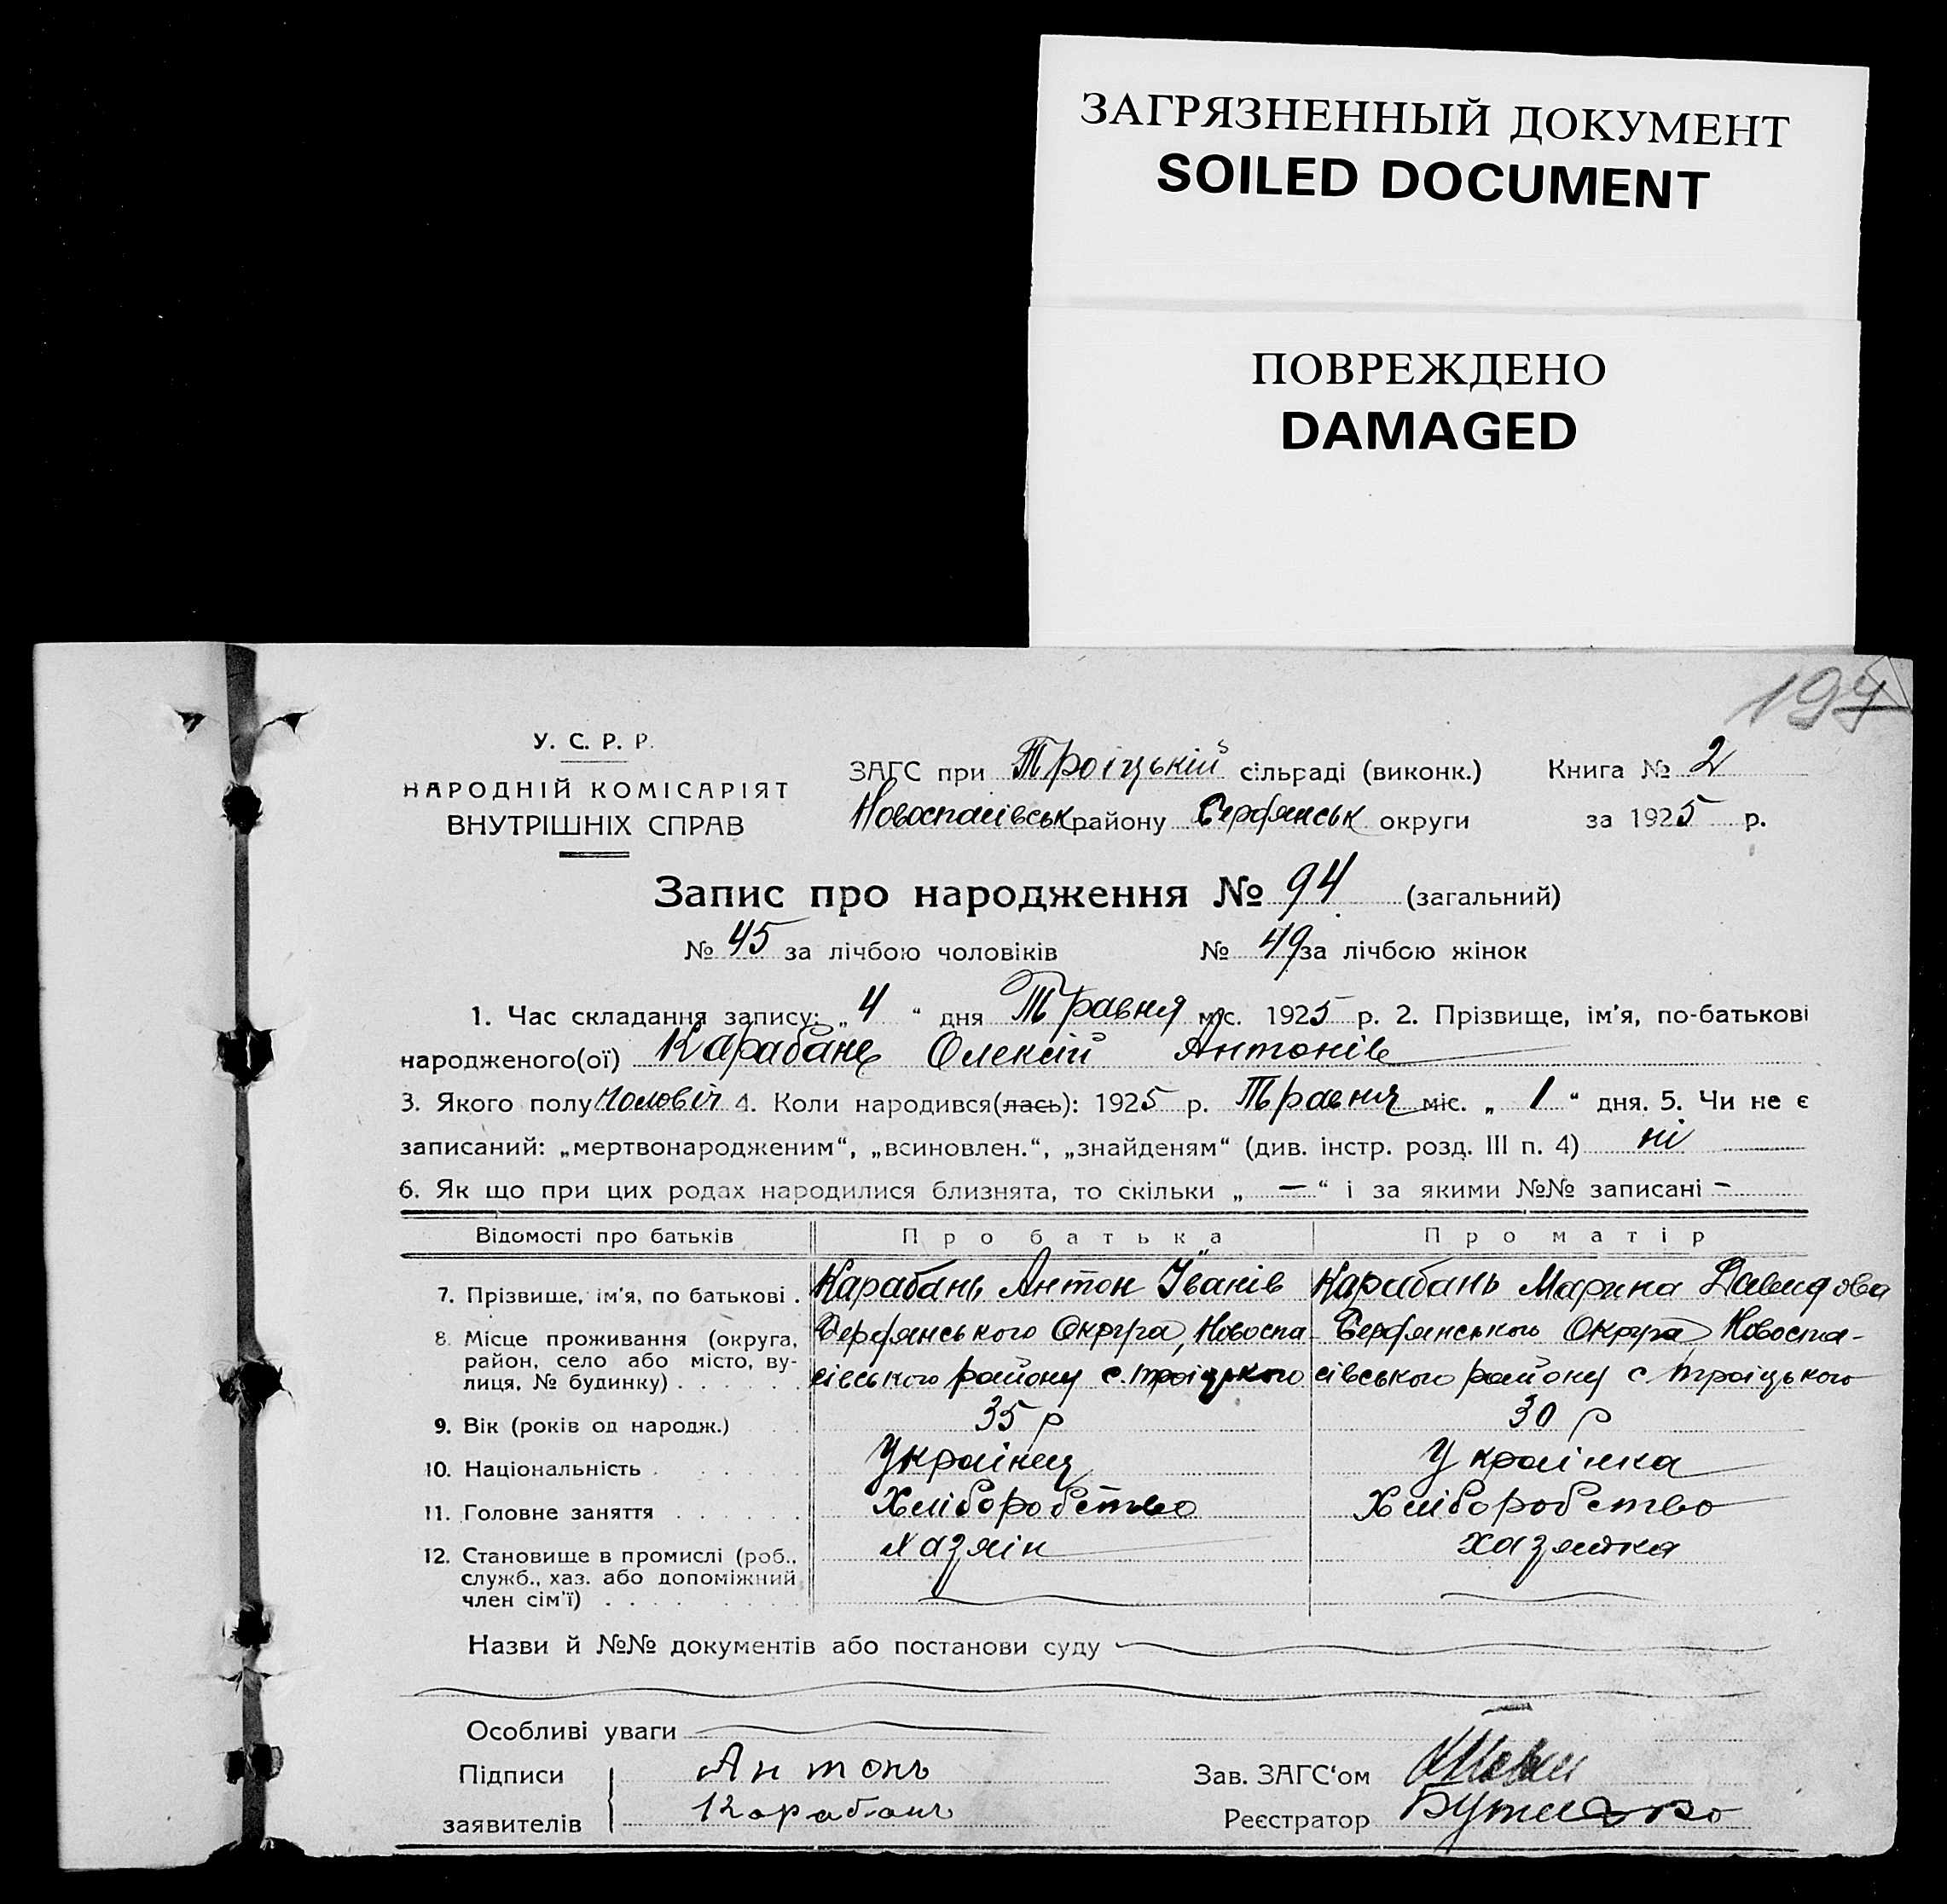 ЗАГРЯЗНЕННЫЙ ДОКУМЕНТ
SOILED DOCUMENT
ПОВРЕЖДЕНО
DAMAGED
У. С. Р. Р.
НАРОДНІЙ КОМІСАРІЯТ
ВНУТРІШНІХ СПРАВ
ЗАГС при Троіцькій сільраді (виконк.) Книга № 2
Новоспасівськ району Бердянськ округи за 1925 р.
Запис про народження № 94 (загальний)
№ 45 за лічбою чоловіків № 49 за лічбою жінок
1. Час складання запису: „4“ дня Травня міс. 1925 р. 2. Прізвище, ім’я, по-батькові
народженого(ої) Карабань Олексій Антонів
3. Якого полу Чоловіч 4. Коли народився(лась): 1925 р. Травня міс. „1“ дня. 5. Чи не є
записаний: „мертвонародженим“, „всиновлен.“, „знайденям“ (див. інстр. розд. III п. 4) ні
6. Як що при цих родах народилися близнята, то скільки „ — “ і за якими №№ записані –
Відомості про батьків Про батька Про матір
7. Прізвище, ім’я, по батькові . Карабань Антон Іванів Карабань Марина Давидова
8. Місце проживання (округа, Бердянського Округа, Новоспа- Бердянського Округа Новоспа-
район, село або місто, ву-
лиця, № будинку) . . . . . . сівського району с. Троіцького сівського району с Троіцького
9. Вік (років од народж.) 35 р 30 р
10. Національність . Украінец Украінка
11. Головне заняття . . . . . . Хліборобство Хліборобство
12. Становище в промислі (роб., Хазяін хазяйка
служб., хаз. або допоміжний
член сім’ї) . . . .
Назви й №№ документів або постанови суду
Особливі уваги
Підписи Антонъ Зав. ЗАГС‘ом
заявителів Карабань Реєстратор